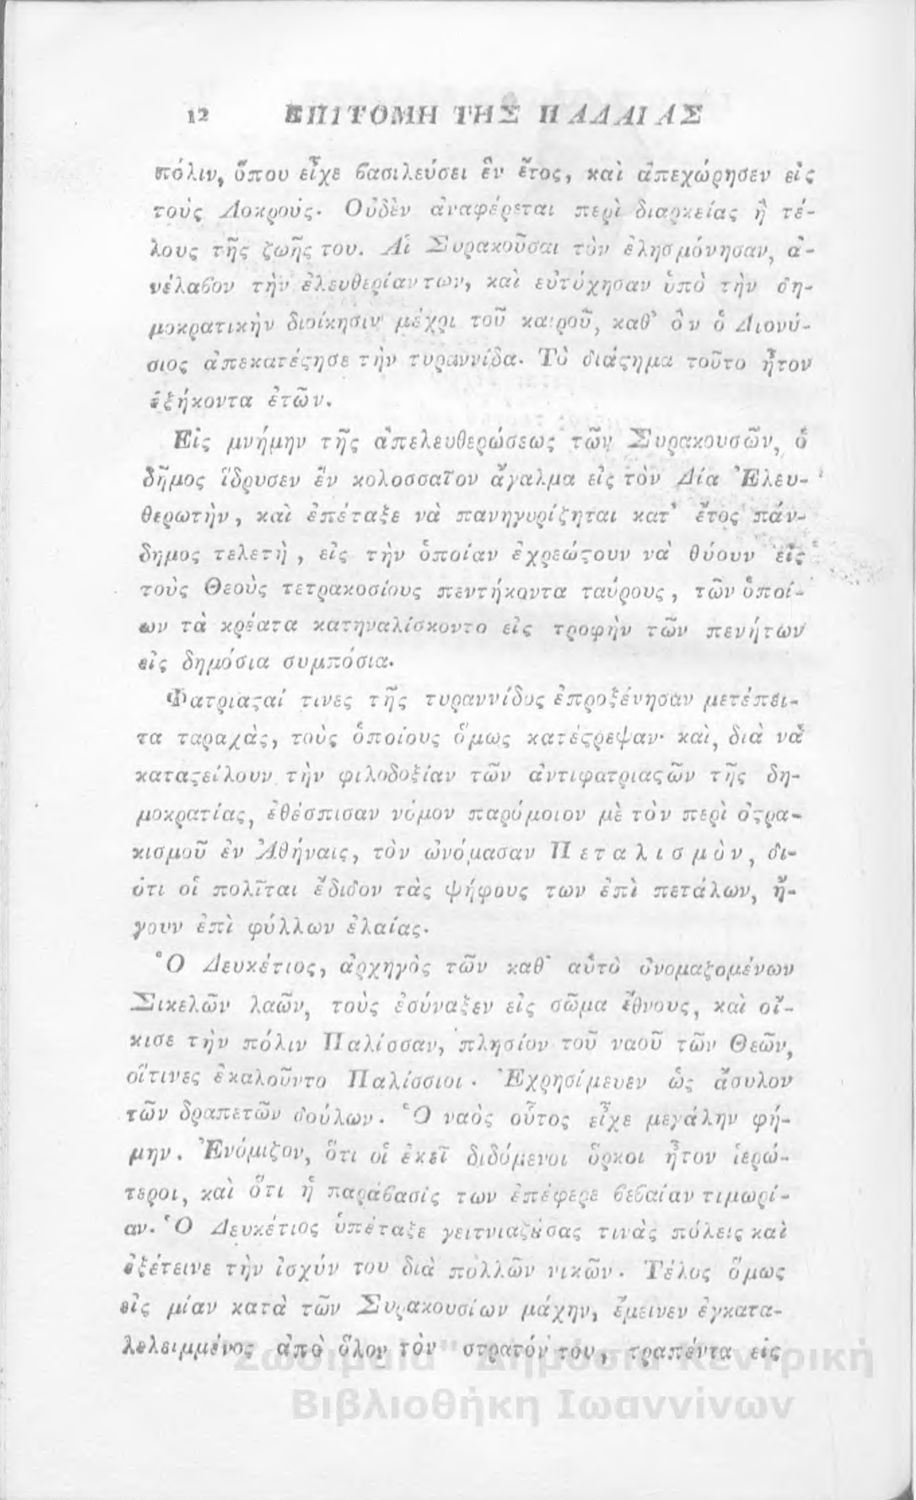 12 ΕΠΙΤΟΜΗ ΤΗΣ ΠΑΛΑΙΑΣ
πόλιν, ὅπου εἶχε βασιλεύσει ἓν ἔτος, καὶ ἀπεχώρησεν εἰς
τοὺς Λοκρούς· Οὐδὲν ἀναφέρεται περὶ διαρκείας ἢ τέ-
λους τῆς ζωῆς του. Αἱ Συρακοῦσαι τὸν ἐλησμόνησαν, ἀ-
νέλαβον τὴν ἐλευθερίαν των, καὶ εὐτύχησαν ὑπὸ τὴν δη-
μοκρατικὴν διοίκησιν μέχρι τοῦ καιροῦ, καθ' ὃν ὁ Διονύ-
σιος ἀπεκατέςησε τὴν τυραννίδα· Τὸ διάςημα τοῦτο ἦτον
ἑξήκοντα ἐτῶν.
Εἰς μνήμην τῆς ἀπελευθερώσεως τῶν Συρακουσῶν, ὁ
δῆμος ἵδρυσεν ἓν κολοσσαῖον ἄγαλμα εἰς τὸν Δία Ἐλευ-
θερωτὴν, καὶ ἐπέταξε νὰ πανηγυρίζηται κατ' ἔτος πάν-
δημος τελετὴ, εἰς τὴν ὁποίαν ἐχρεώςουν νὰ θύουν εἰς
τοὺς Θεοὺς τετρακοσίους πεντήκοντα ταύρους, τῶν ὁποί-
ων τὰ κρέατα κατηναλίσκοντο εἰς τροφὴν τῶν πενήτων
εἰς δημόσια συμπόσια.
Φατριαςαί τινες τῆς τυραννίδος ἐπροξένησαν μετέπει-
τα ταραχὰς, τοὺς ὁποίους ὅμως κατέςρεψαν· καὶ, διὰ νὰ
καταςείλουν τὴν φιλοδοξίαν τῶν ἀντιφατριαςῶν τῆς δη-
μοκρατίας, ἐθέσπισαν νόμον παρόμοιον μὲ τὸν περὶ ὀςρα-
κισμοῦ ἐν Ἀθήναις, τὸν ὠνόμασαν Πεταλισμὸν, δι-
ότι οἱ πολῖται ἔδιδον τὰς ψήφους των ἐπὶ πετάλων, ἤ-
γουν ἐπὶ φύλλων ἐλαίας.
Ὁ Δευκέτιος, ἀρχηγὸς τῶν καθ' αὑτὸ ὀνομαζομένων
Σικελῶν λαῶν, τοὺς ἐσύναξεν εἰς σῶμα ἔθνους, καὶ οἴ-
κισε τὴν πόλιν Παλίσσαν, πλησίον τοῦ ναοῦ τῶν Θεῶν,
οἵτινες ἐκαλοῦντο Παλίσσιοι. Ἐχρησίμευεν ὡς ἄσυλον
τῶν δραπετῶν δούλων. Ὁ ναὸς οὗτος εἶχε μεγάλην φή-
μην. Ἐνόμιζον, ὅτι οἱ ἐκεῖ διδόμενοι ὅρκοι ἦτον ἱερώ-
τεροι, καὶ ὅτι ἡ παράβασίς των ἐπέφερε βεβαίαν τιμωρί-
αν. Ὁ Δευκέτιος ὑπέταξε γειτνιαζούσας τινὰς πόλεις καὶ
ἐξέτεινε τὴν ἰσχύν του διὰ πολλῶν νικῶν. Τέλος ὅμως
εἰς μίαν κατὰ τῶν Συρακουσίων μάχην, ἔμεινεν ἐγκατα-
λελειμμένος ἀπὸ ὅλον τὸν στρατόν του, τραπέντα εἰς
"Ζωσιμαία" Δημόσια Κεντρική
Βιβλιοθήκη Ιωαννίνων